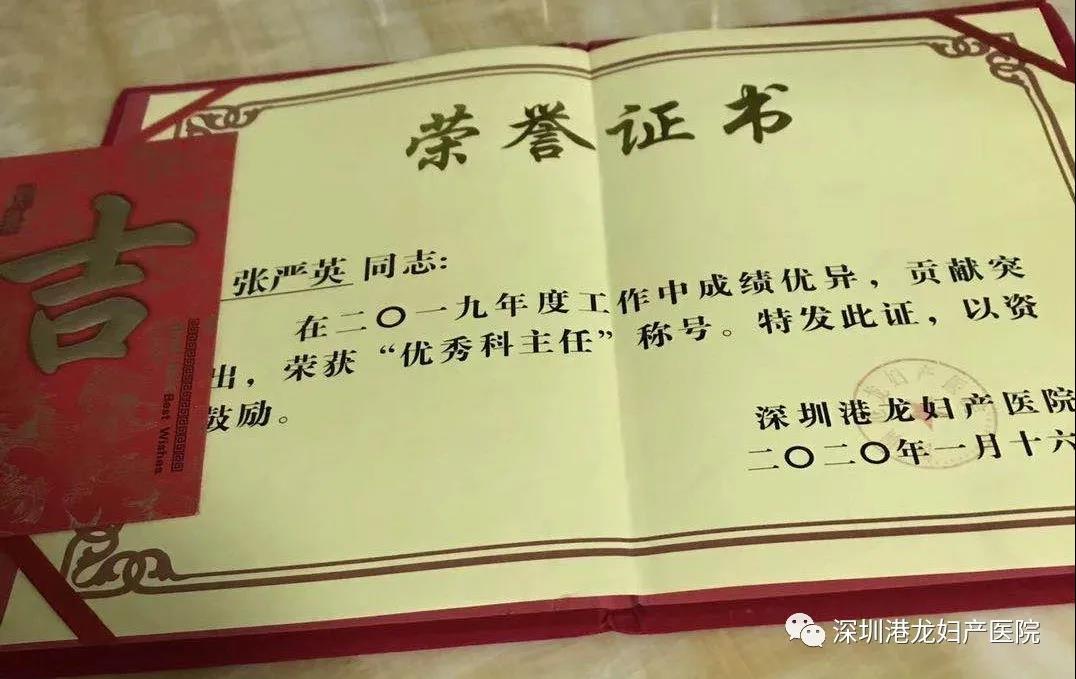 荣誉证书
张严英 同志:
在二〇一九年度工作中成绩优异，贡献突
出，荣获“优秀科主任”称号。特发此证，以资
鼓励。
深圳港龙妇产医院
二〇二〇年一月十六
吉
Best Wishes
深圳港龙妇产医院